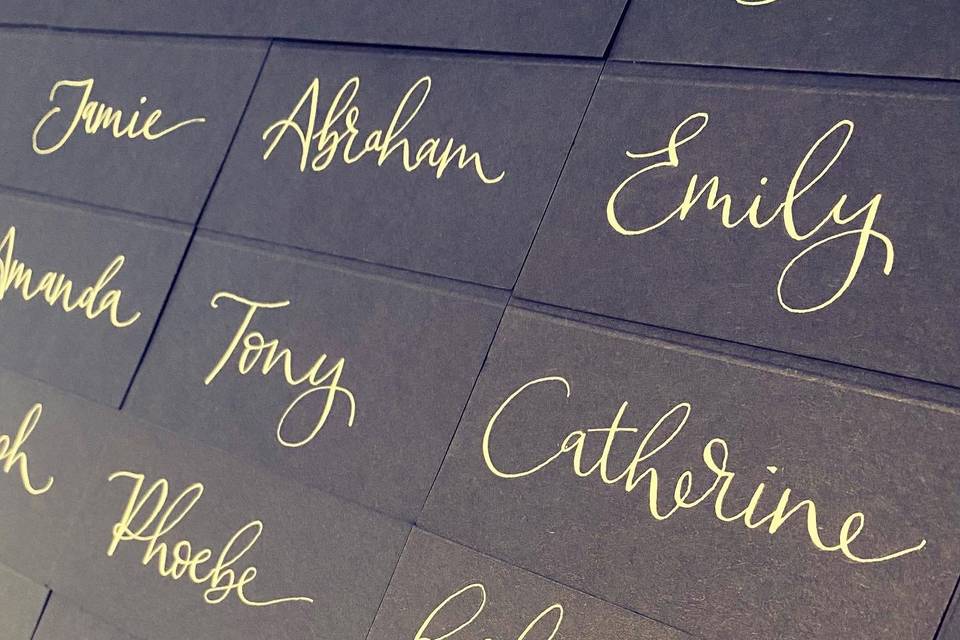 Jamie
Abraham
Emily
Amanda
Tony
Catherine
ph
Phoebe